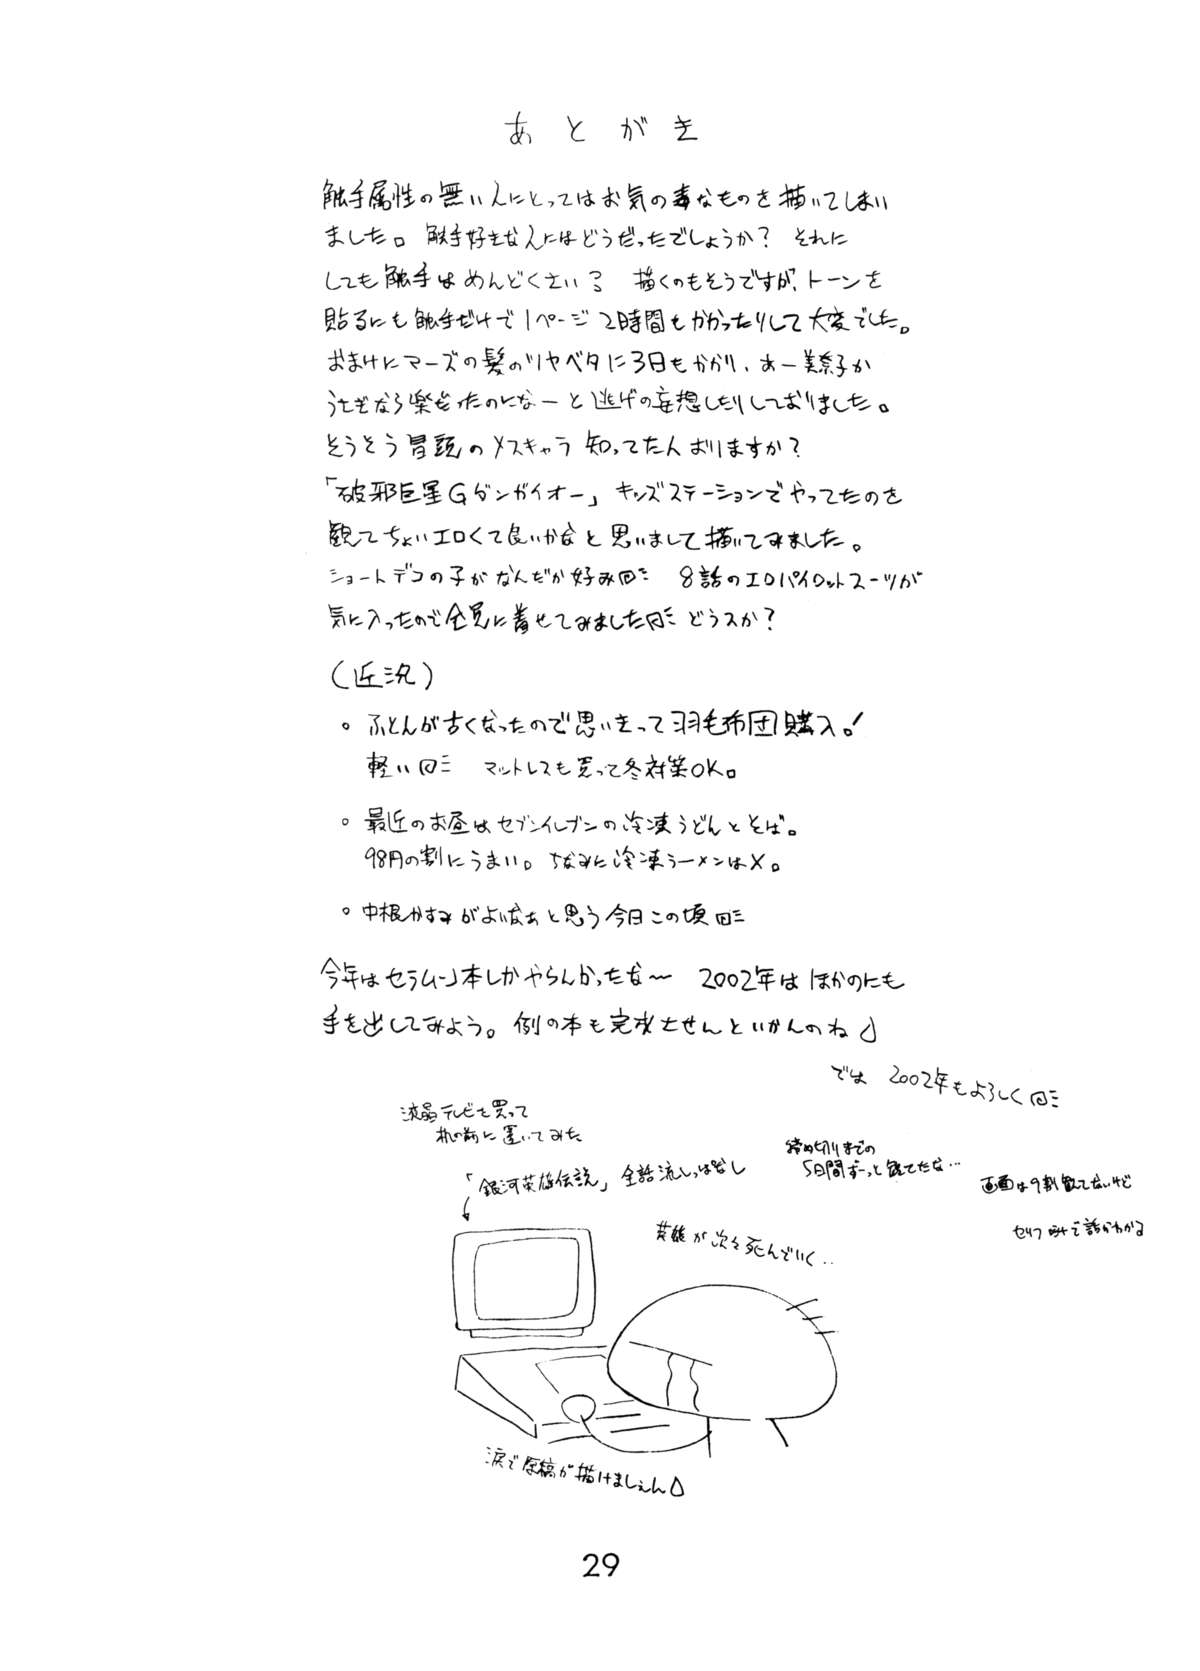 あとがき
触手属性の無い人にとってはお気の毒なものを描いてしまい
ました。触手好きな人にはどうだったでしょうか? それに
しても触手はめんどくさい 描くのもそうですが、トーンを
貼るにも触手だけで1ページ2時間もかかったりして大変でした。
おまけにマーズの髪のツヤベタに3日もかかり、あー美奈子か
うさぎなら楽だったのになーと逃げの妄想したりしておりました。
そうそう冒頭のメスキャラ知ってたんおりますか?
「破邪巨星Gダンガイオー」キッズステーションでやってたのを
観てちょいエロくて良いかなと思いまして描いてみました。
ショートデコの子がなんだか好み 8話のエロパイロットスーツが
気に入ったので全員に着せてみました どうスか?
(近況)
。ふとんが古くなったので思いきって羽毛布団購入!
軽い マットレスも買って冬対策OK。
。最近のお昼はセブンイレブンの冷凍うどんとそば。
98円の割にうまい。ちなみに冷凍ラーメンは×。
。中根かすみがよいなぁと思う今日この頃
今年はセラムン本しかやらんかったな〜 2002年はほかのにも
手を出してみよう。例の本も完成させんといかんのね
では 2002年もよろしく
液晶テレビを買って
机の前に置いてみた
「銀河英雄伝説」全話流しっぱなし
締め切りまでの
5日間ずーっと観てたな…
画面は9割観てないけど
セリフだけで話がわかる
英雄が次々死んでいく…
涙で原稿が描けましぇん
29